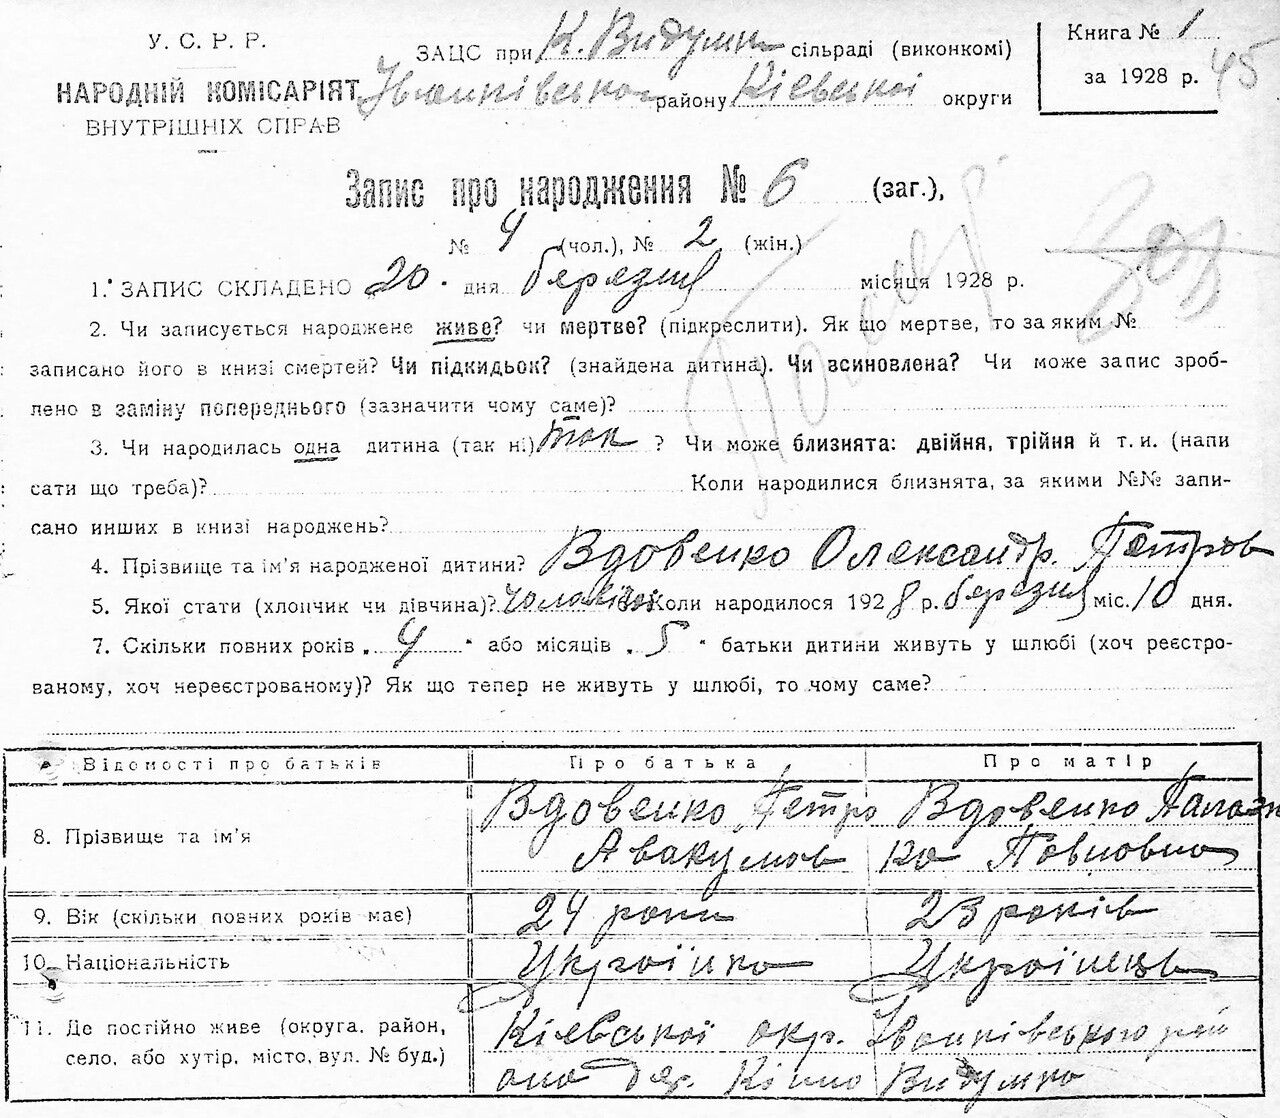 У. С. Р. Р.
НАРОДНІЙ КОМІСАРІЯТ
ВНУТРІШНІХ СПРАВ
ЗАЦС при К. Видумка сільраді (виконкомі)
Іванківського району Кіевської округи
Книга № 1
за 1928 р. 45
Запис про народження № 6 (заг.),
№ 4 (чол.), № 2 (жін.)
1. ЗАПИС СКЛАДЕНО 20 дня березня місяця 1928 р.
2. Чи записується народжене живе? чи мертве? (підкреслити). Як що мертве, то за яким №
записано його в книзі смертей? Чи підкидьок? (знайдена дитина). Чи всиновлена? Чи може запис зроб-
лено в заміну попереднього (зазначити чому саме)?
3. Чи народилась одна дитина (так ні) так ? Чи може близнята: двійня, трійня й т. и. (напи
сати що треба)? Коли народилися близнята, за якими №№ запи-
сано инших в книзі народжень?
4. Прізвище та ім'я народженої дитини? Вдовенко Олександр. Петров
5. Якої статі (хлопчик чи дівчина)? Коли народилося 1928 р. березня міс. 10 дня.
7. Скільки повних років „ 4 " або місяців „ 5 " батьки дитини живуть у шлюбі (хоч реєстро-
ваному, хоч нереєстрованому)? Як що тепер не живуть у шлюбі, то чому саме?
Відомості про батьків Про батька Про матір
8. Прізвище та ім'я
Вдовенко Петро
Авакумов
Вдовенко Палаж
ка Повловно
9. Вік (скільки повних років має) 24 роки 23 років
10. Національність Украінка Украінець
11. Де постійно живе (округа, район,
село, або хутір, місто, вул. № буд.)
Кіевської окр. Іванківського рай
она дер. Кіпно Видумка